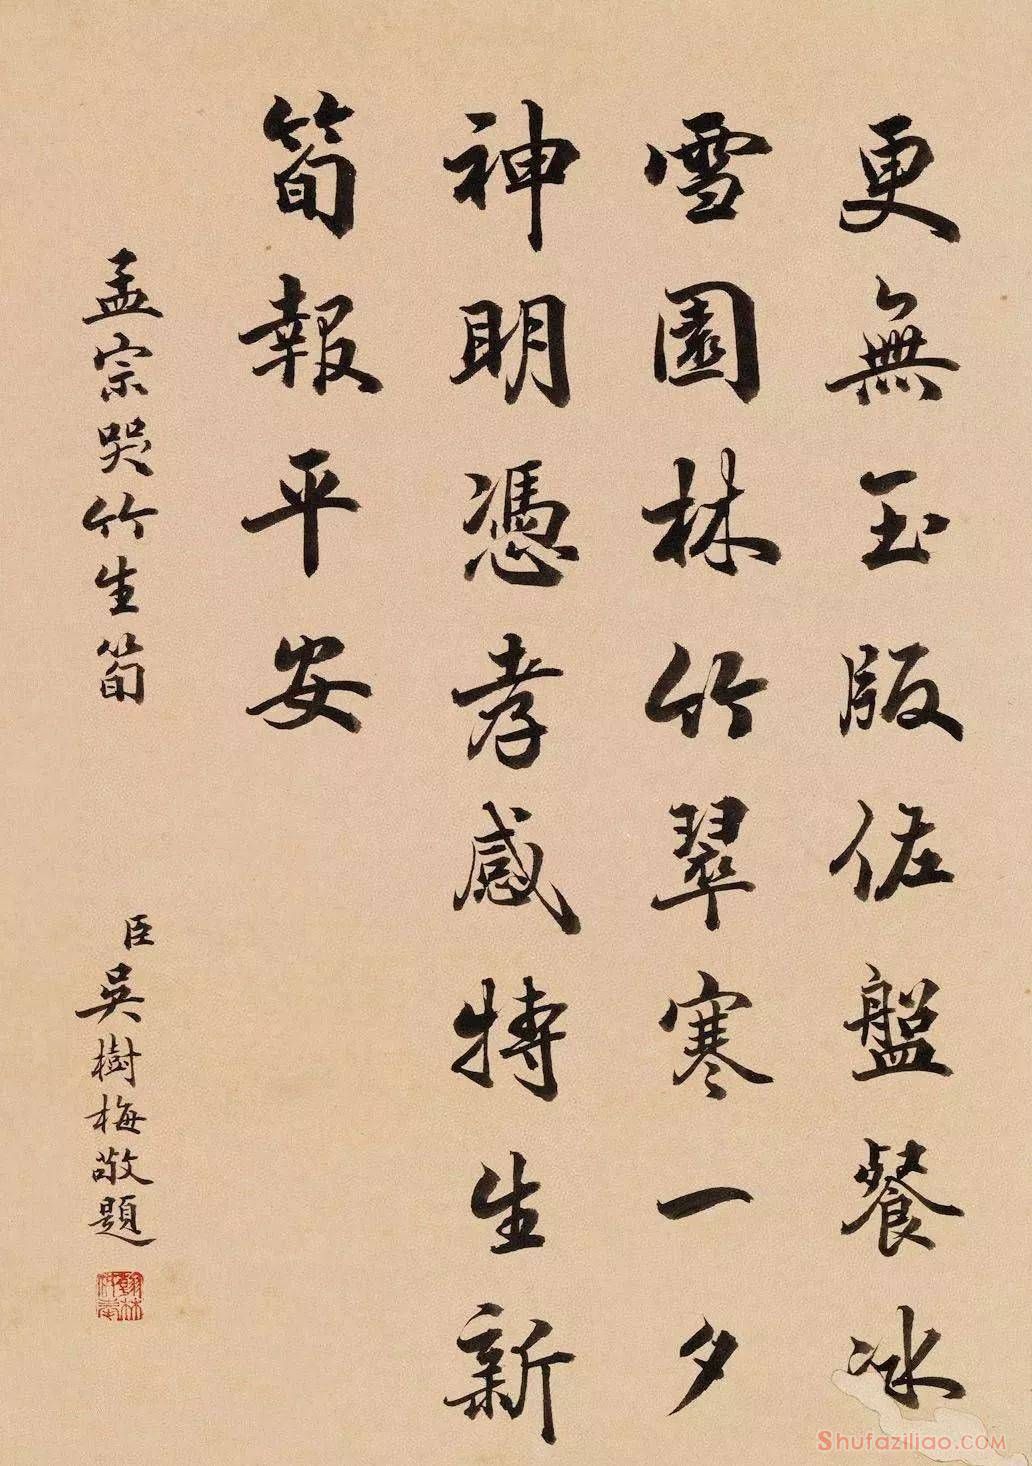 更無玉版佐盤餐冰
雪園林竹翠寒一夕
神明憑孝感特生新
筍報平安
孟宗哭竹生筍
臣吳樹梅敬題
Shufaziliao.COM